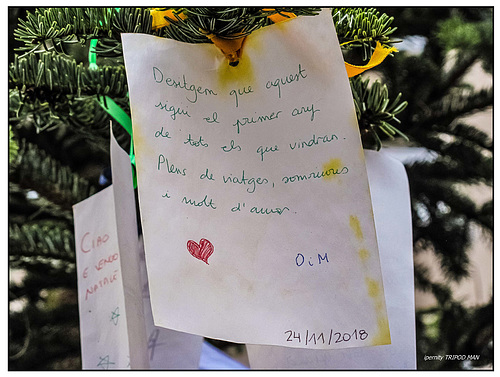 Desitgem que aquest
sigui el primer any
de tots els que vindran.
Plens de viatges, somriures
i molt d'amor.
O i M
24/11/2018
CIAO
E
NATALE
ipernity TRIPOD MAN